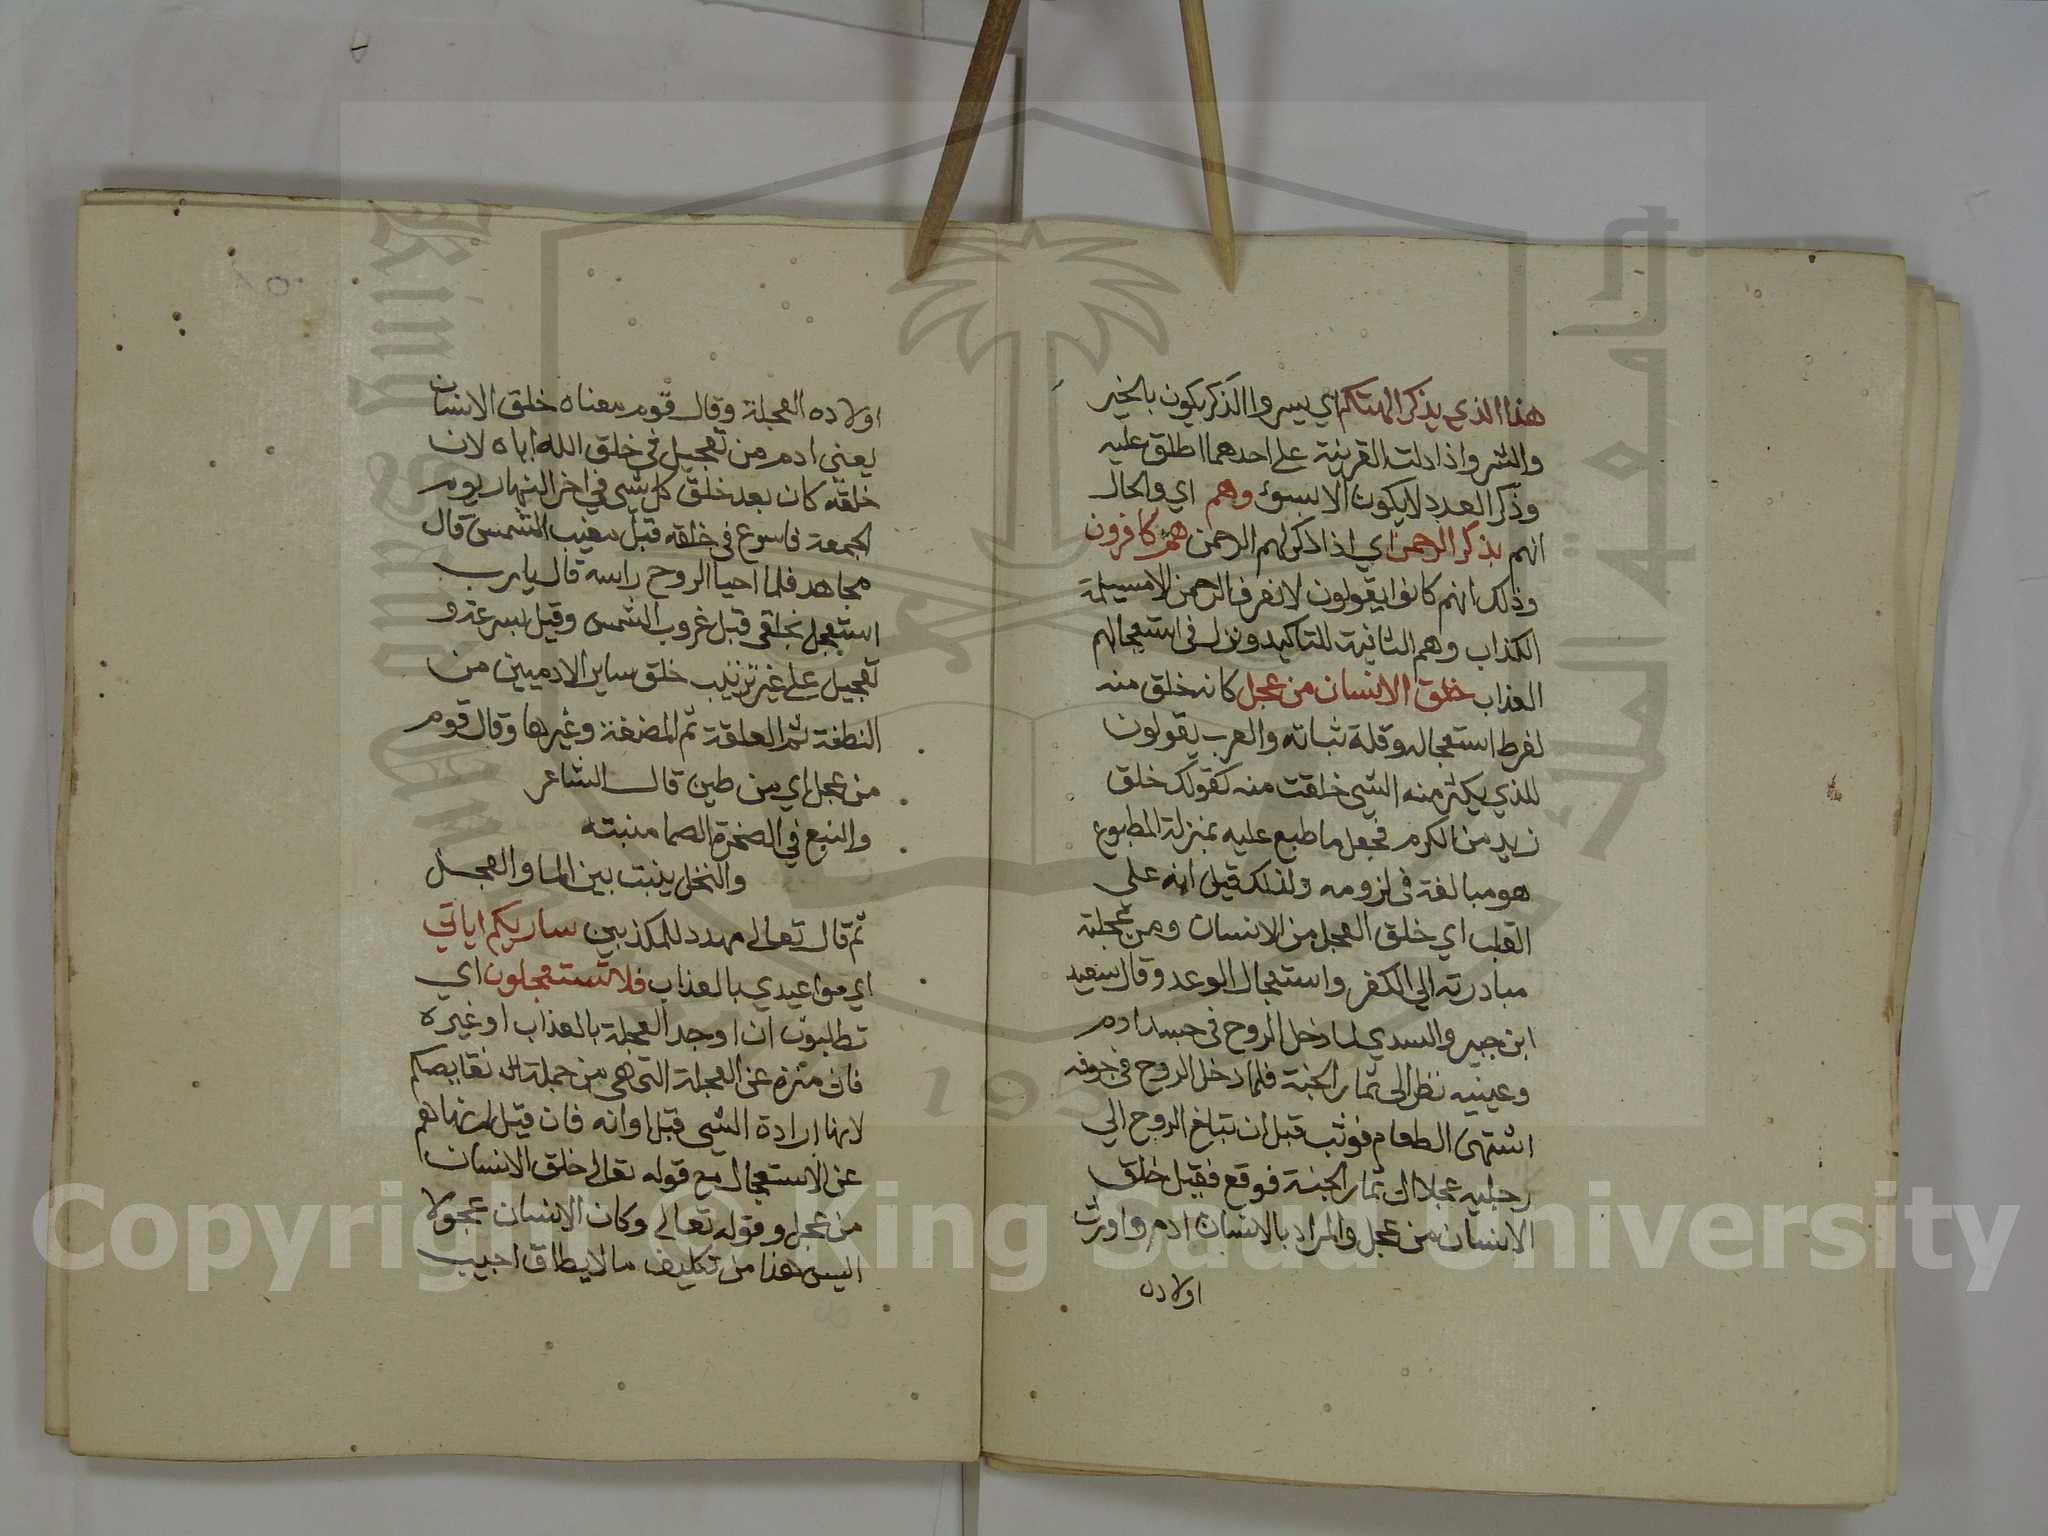 هذا الذي يذكر الهتكم اي يسبروا الذكر يكون بالخير
والشر واذا دلت القرينة على احدهما اطلق عليه
وذكر العدد لا يكون الا بسوء وهم اي والحال
انهم بذكر الرحمن اي اذا ذكر لهم الرحمن هم كافرون
وذلك انهم كانوا يقولون لا نعرف الرحمن الا مسيلمة
الكذاب وهم الثانية للتاكيد ونزل في استعجالهم
العذاب خلق الانسان من عجل كانه خلق منه
لفرط استعجاله وقلة ثباته والعرب يقولون
للذي يكثر منه الشي خلقت منه كقولك خلق
زيد من الكرم فجعل ما طبع عليه بمنزلة المطبوع
هو مبالغة في لزومه ولذلك قيل انه على
القلب اي خلق العجل من الانسان ومن عجلته
مبادرته الى الكفر واستعجال الوعد وقال سعيد
ابن جبير والسدي لما دخل الروح في جسد ادم
وعينيه نظر الى ثمار الجنة فلما دخل الروح في جوفه
اشتهى الطعام فوثب قبل ان تبلغ الروح الي
رجليه عجلا الى ثمار الجنة فوقع فقيل خلق
الانسان من عجل والمراد بالانسان ادم واورث
اولاده
اولاده العجلة وقال قوم معناه خلق الانسان
يعني ادم من تعجيل في خلق الله اياه لان
خلقه كان بعد خلق كل شي في اخر النهار يوم
الجمعة فاسرع في خلقه قبل مغيب الشمس قال
مجاهد فلما احيا الروح راسه قال يا رب
استعجل بخلقي قبل غروب الشمس وقيل بسرعة و
تعجيل على غير ترتيب خلق ساير الادميين من
النطفة ثم العلقة ثم المضغة وغيرها وقال قوم
من عجل اي من طين قال الشاعر
والنبع في الصخرة الصما منبته
والنخل ينبت بين الما والعجل
ثم قال تعالى مهدد للمكذبين ساريكم اياتي
اي مواعيدي بالعذاب فلا تستعجلون اي
تطالبون ان اوجد العجلة بالعذاب او غيره
فان منزه عن العجلة التي هي من جملة نقايصكم
لانها ارادة الشي قبل اوانه فان قيل لم نهاهم
عن الاستعجال مع قوله تعالى خلق الانسان
من عجل وقوله تعالى وكان الانسان عجولا
اليس هذا من تكليف ما لا يطاق اجيب
Copyright © King Saud University